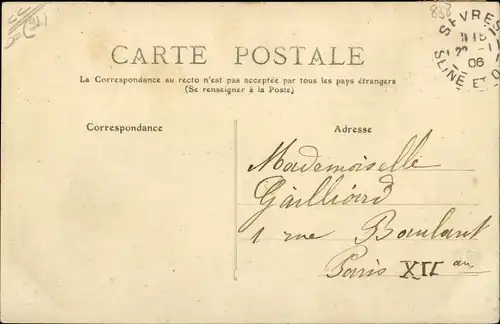 CARTE POSTALE
La Correspondance au recto n'est pas acceptée par tous les pays étrangers
(Se renseigner à la Poste)
Correspondance
Adresse
Mademoiselle
Gailliard
1 rue Baulant
Paris XII
SÈVRES
06
SEINE ET O